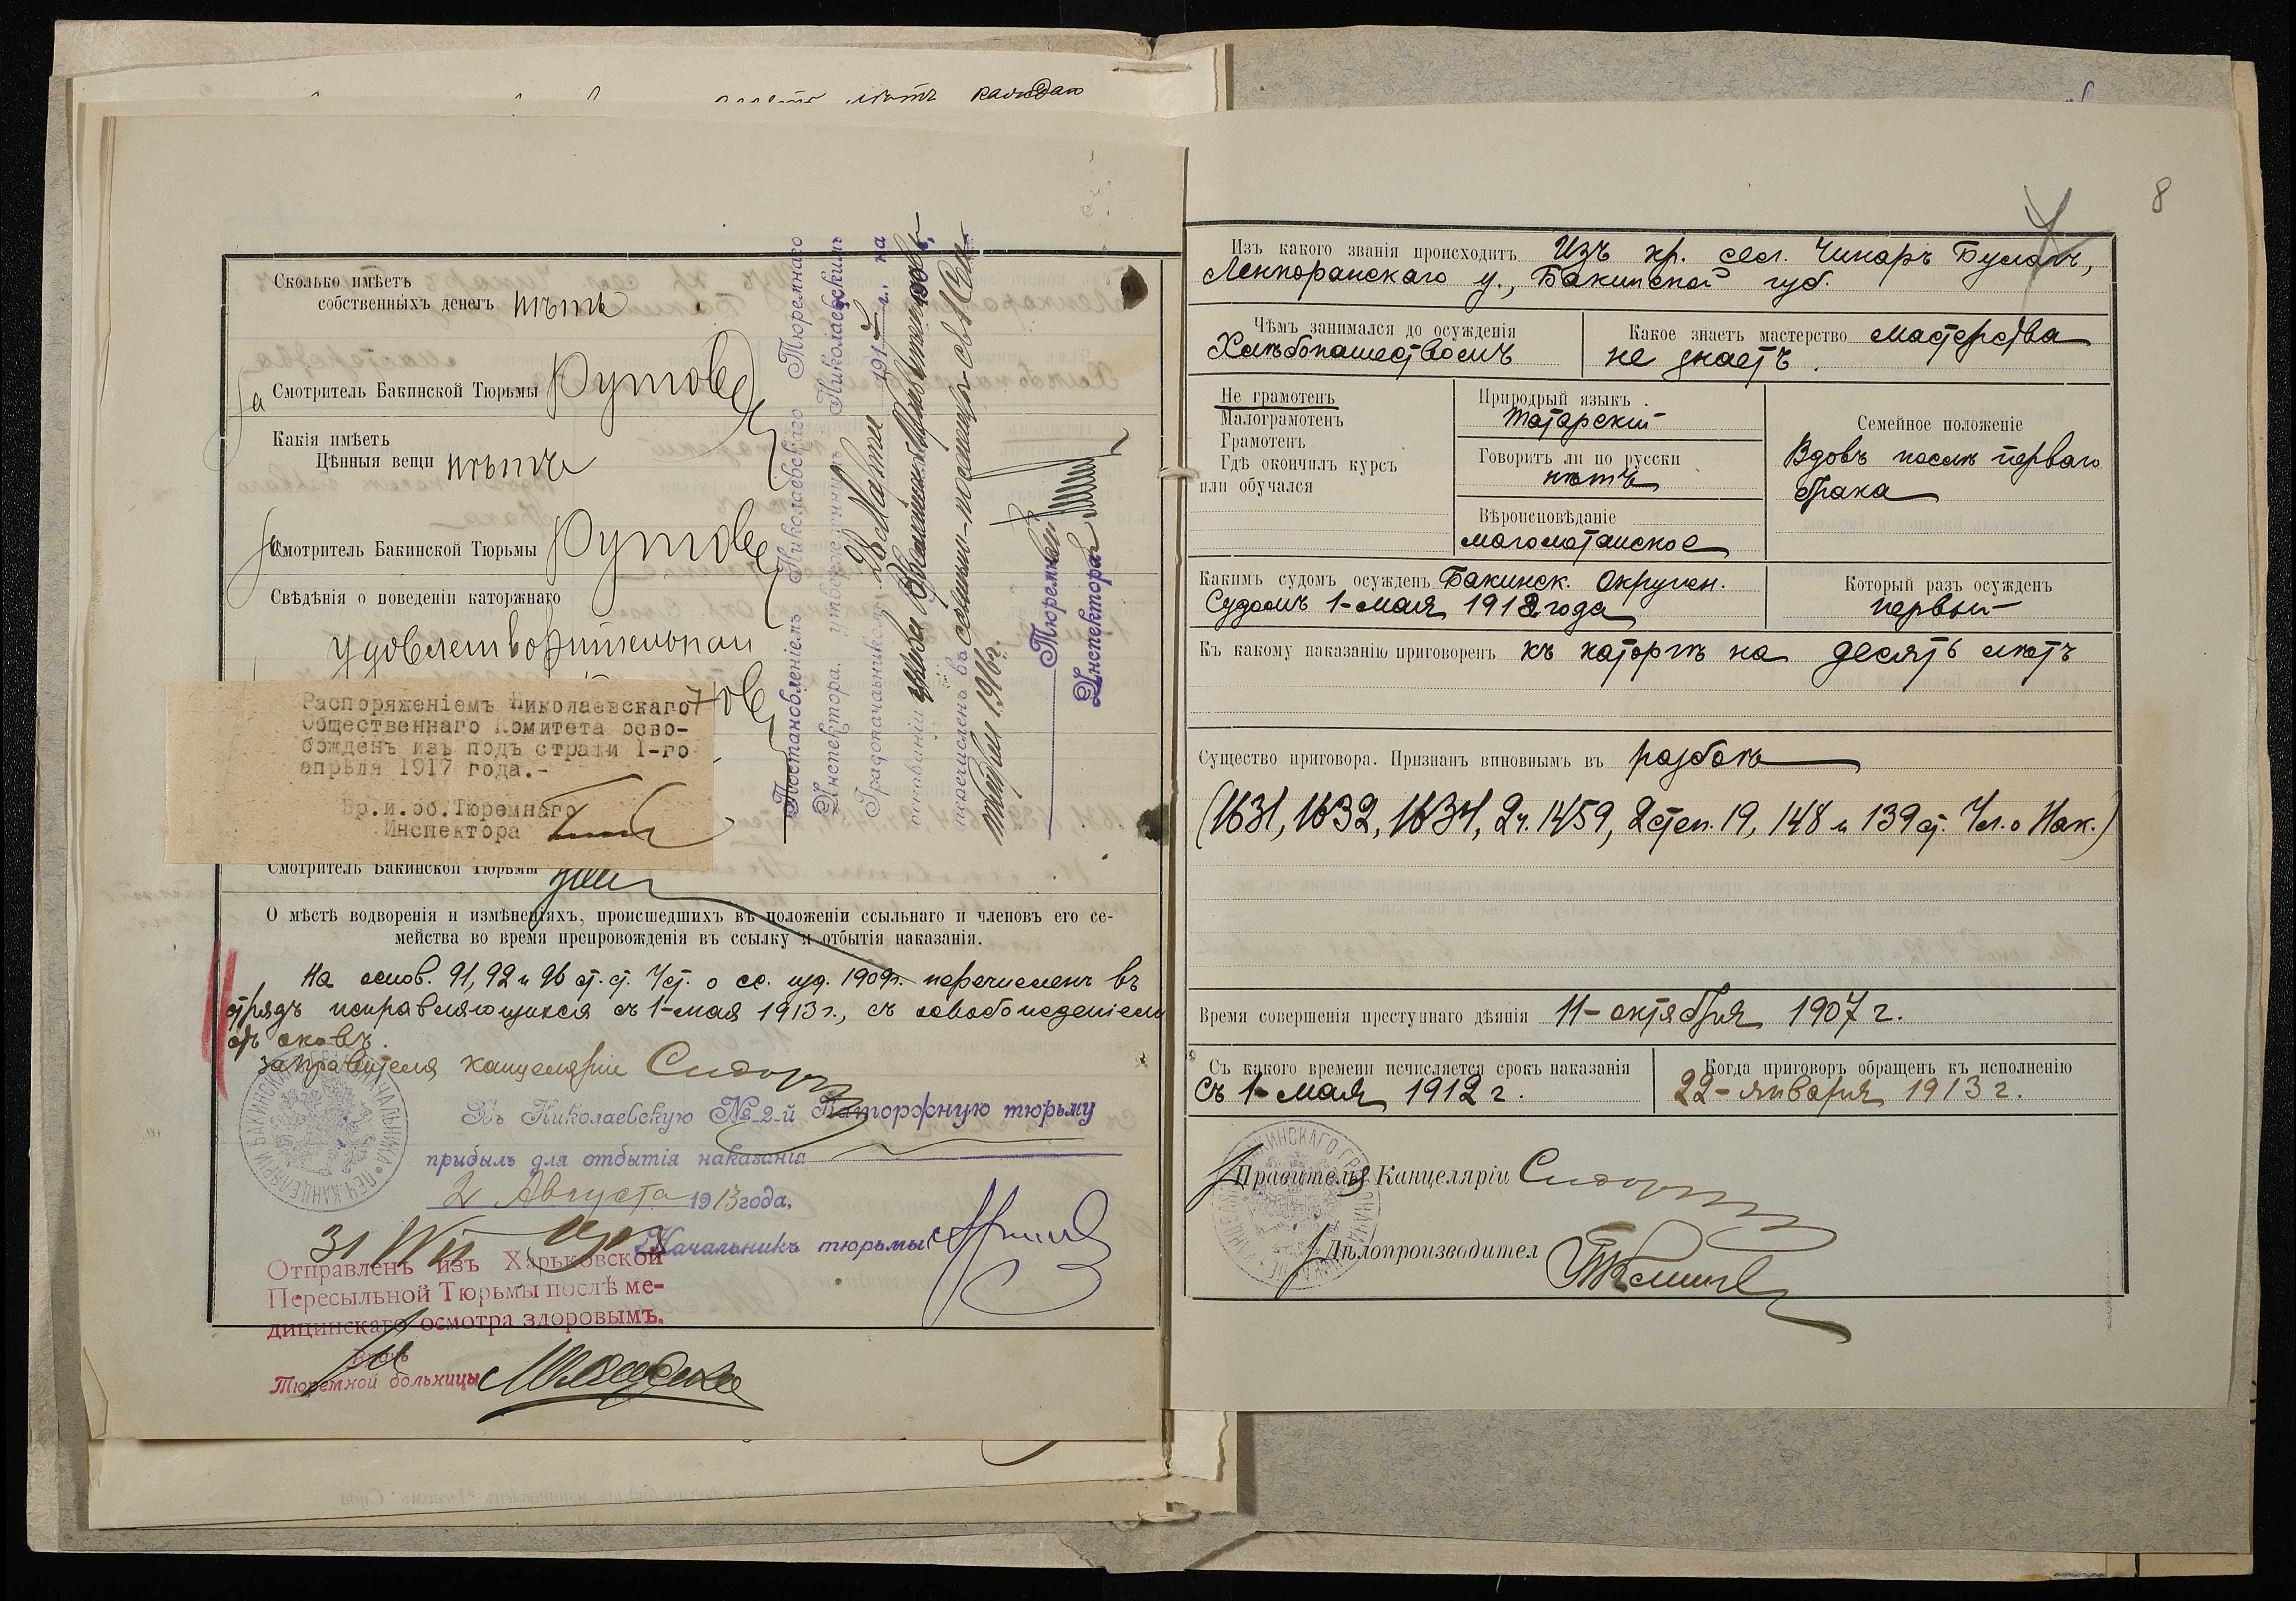 лѣтъ
Сколько имѣетъ
собственныхъ денегъ нѣтъ
За Смотритель Бакинской Тюрьмы Рутов
Какія имѣетъ
Цѣнныя вещи нѣтъ
За Смотритель Бакинской Тюрьмы Рутов
Свѣдѣнія о поведеніи каторжнаго
удовлетворительнаи
Распоряженіемъ Николаевскаго
Общественнаго Комитета осво-
божденъ изъ подъ стражи 1-го
апрѣля 1917 года.-
Вр.и.об.Тюремнаго
Инспектора
Смотритель Бакинской Тюрьмы
О мѣстѣ водворенія и измѣненіяхъ, происшедшихъ въ положеніи ссыльнаго и членовъ его се-
мейства во время препровожденія въ ссылку и отбытія наказанія.
На основ. 91, 92 и 96 ст. ст. Уст. о сс. изд. 1909г. перечисленъ въ
отрядъ исправляющихся съ 1-мая 1913 г., съ освобожденіемъ
отъ оковъ.
За правителя канцеляріи
Въ Николаевскую № 2-й Каторжную тюрьму
прибылъ для отбытія наказанія
2 Августа 1913 года.
Начальникъ тюрьмы
31 VII
Отправленъ изъ Харьковской
Пересыльной Тюрьмы послѣ ме-
дицинскаго осмотра здоровымъ.
Врачъ
Тюремной больницы
Постановленіемъ Николаевскаго Тюремнаго
Инспектора, утвержденнымъ Николаевскимъ
Градоначальникомъ 20 Марта 191 г. на
основаніи
перечисленъ въ
1916 г.
Тюремный
Инспекторъ
8
Изъ какого званія происходитъ Изъ кр. сел. Чинаръ Булахъ,
Ленкоранскаго у., Бакинской губ.
Чѣмъ занимался до осужденія
Хлѣбопашествомъ
Какое знаетъ мастерство мастерства
не знаетъ.
Не грамотенъ
Малограмотенъ
Грамотенъ
Гдѣ окончилъ курсъ
или обучался
Природрый языкъ
татарскій
Говоритъ ли по русски
нѣтъ
Вѣроисповѣданіе
магометанское
Семейное положеніе
Вдовъ послѣ перваго
брака
Какимъ судомъ осужденъ Бакинск. Окружн.
Судомъ 1-мая 1912 года
Который разъ осужденъ
первый
Къ какому наказанію приговоренъ къ каторгѣ на десять лѣтъ
Существо приговора. Признанъ виновнымъ въ разбоѣ
(1631, 1632, 1634, 2ч. 1459, 2 степ. 19, 148 и 139 ст. Ул. о Нак.)
Время совершенія преступнаго дѣянія 11-октября 1907 г.
Съ какого времени исчисляется срокъ наказанія
съ 1-мая 1912 г.
Когда приговоръ обращенъ къ исполненію
22-января 1913 г.
Правителя Канцеляріи
Дѣлопроизводител